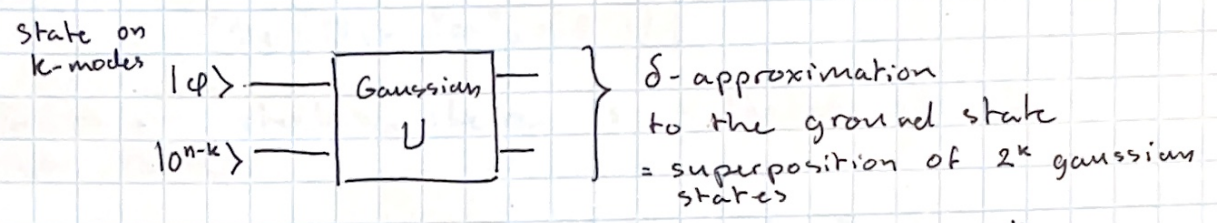 state on
k-modes
|φ⟩
|0ⁿ⁻ᵏ⟩
Gaussian
U
δ-approximation
to the ground state
= superposition of 2ᵏ gaussian
states